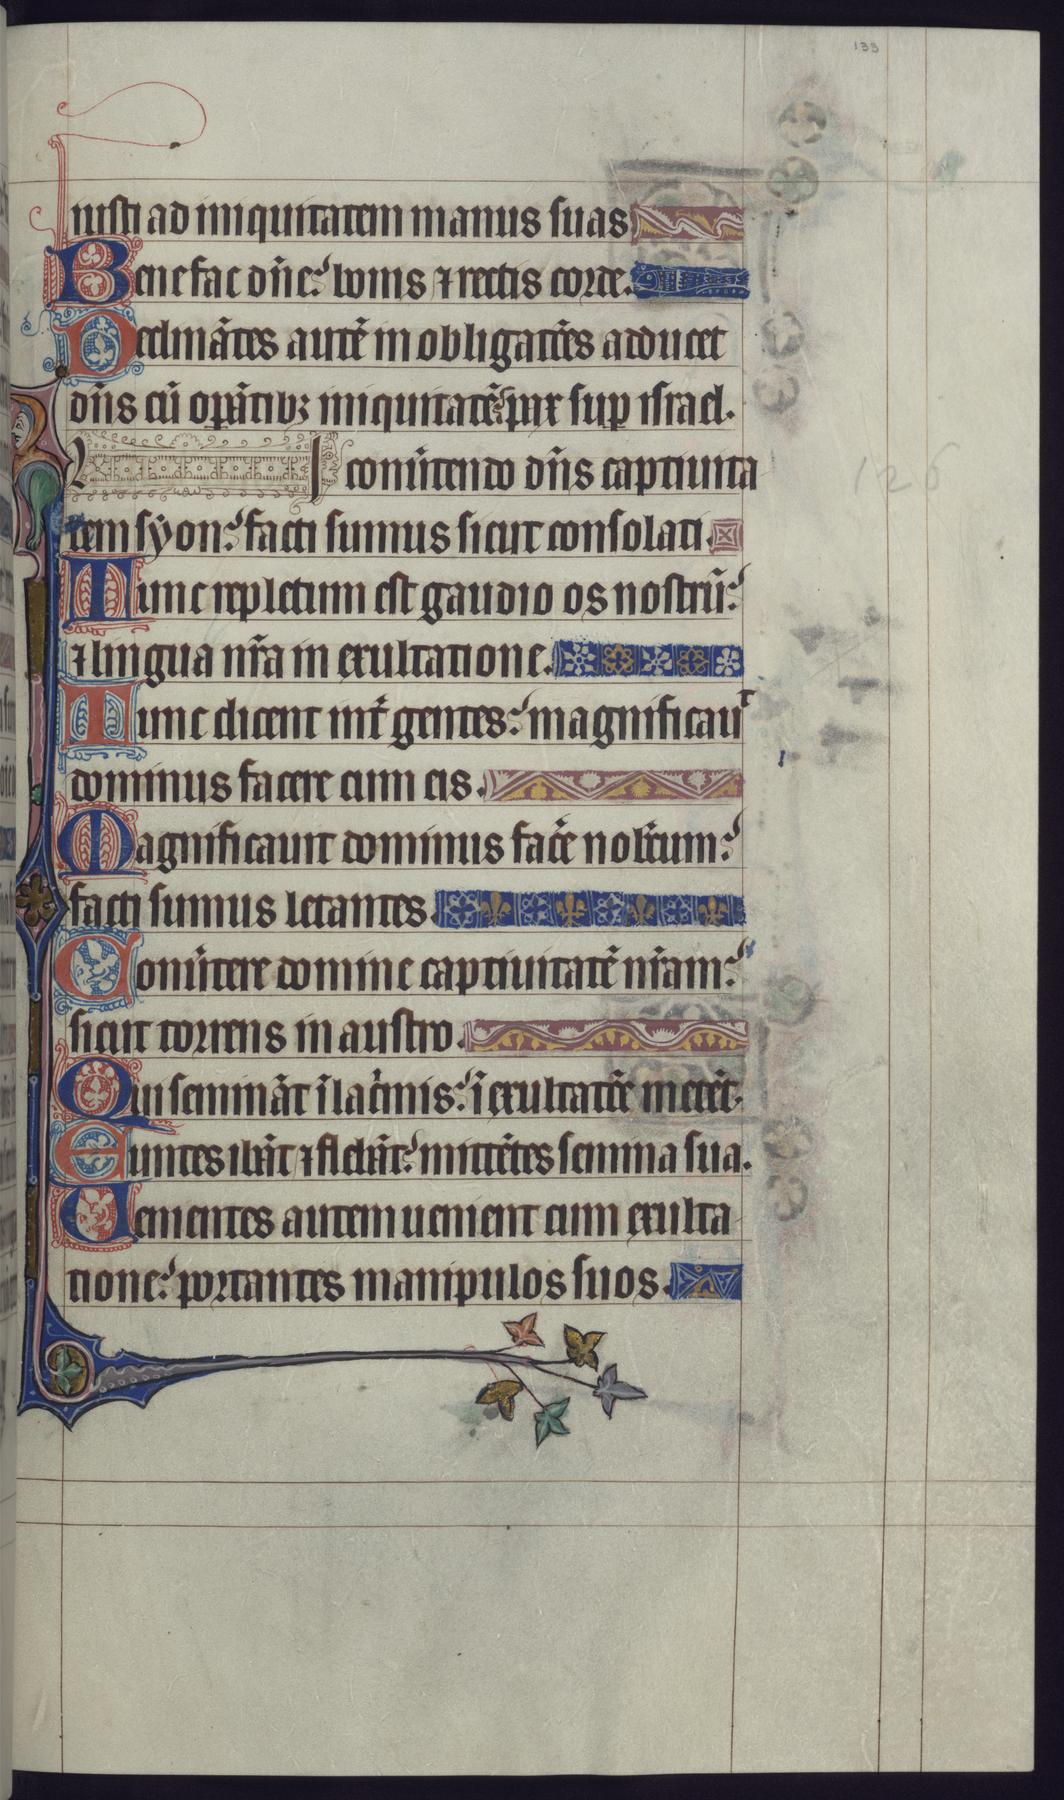 133
iusti ad iniquitatem manus suas
Benefac dn̄e: bonis ⁊ rectis corde.
Declinātes autē in obligatōes adducet
dn̄s cū opātibꝫ iniquitatē: pax sup israel.
I conūtendo dn̄s captiuita
126
tem syon: facti sumus sicut consolati.
Tunc repletum est gaudio os nostrū:
⁊ lingua nr̄a in exultatione.
Tunc dicent int̄ gentes: magnificauͭ
dominus facere cum eis.
Magnificauit dominus fac̄e nobcum:
facti sumus letantes
Conūtere domine captiuitatē nr̄am:
sicut torrens in austro.
Qui semināt ī lac̄mis: ī exultatōe metēt.
Euntes ibāt ⁊ flebāt: mittētes semina sua.
Uenientes autem uenient cum exulta
tione: portantes manipulos suos.